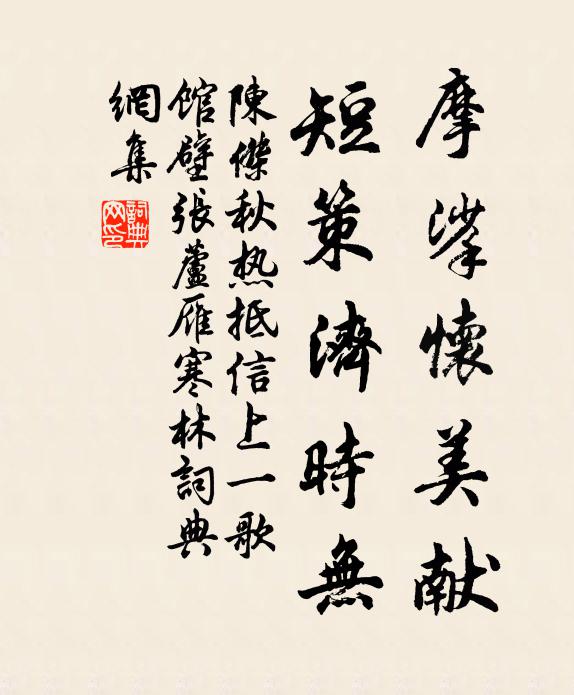 摩挲懷美献
短策濟時無
陳傑秋热抵信上一歌
館壁張蘆雁寒林詞典
網集
詞典
网印